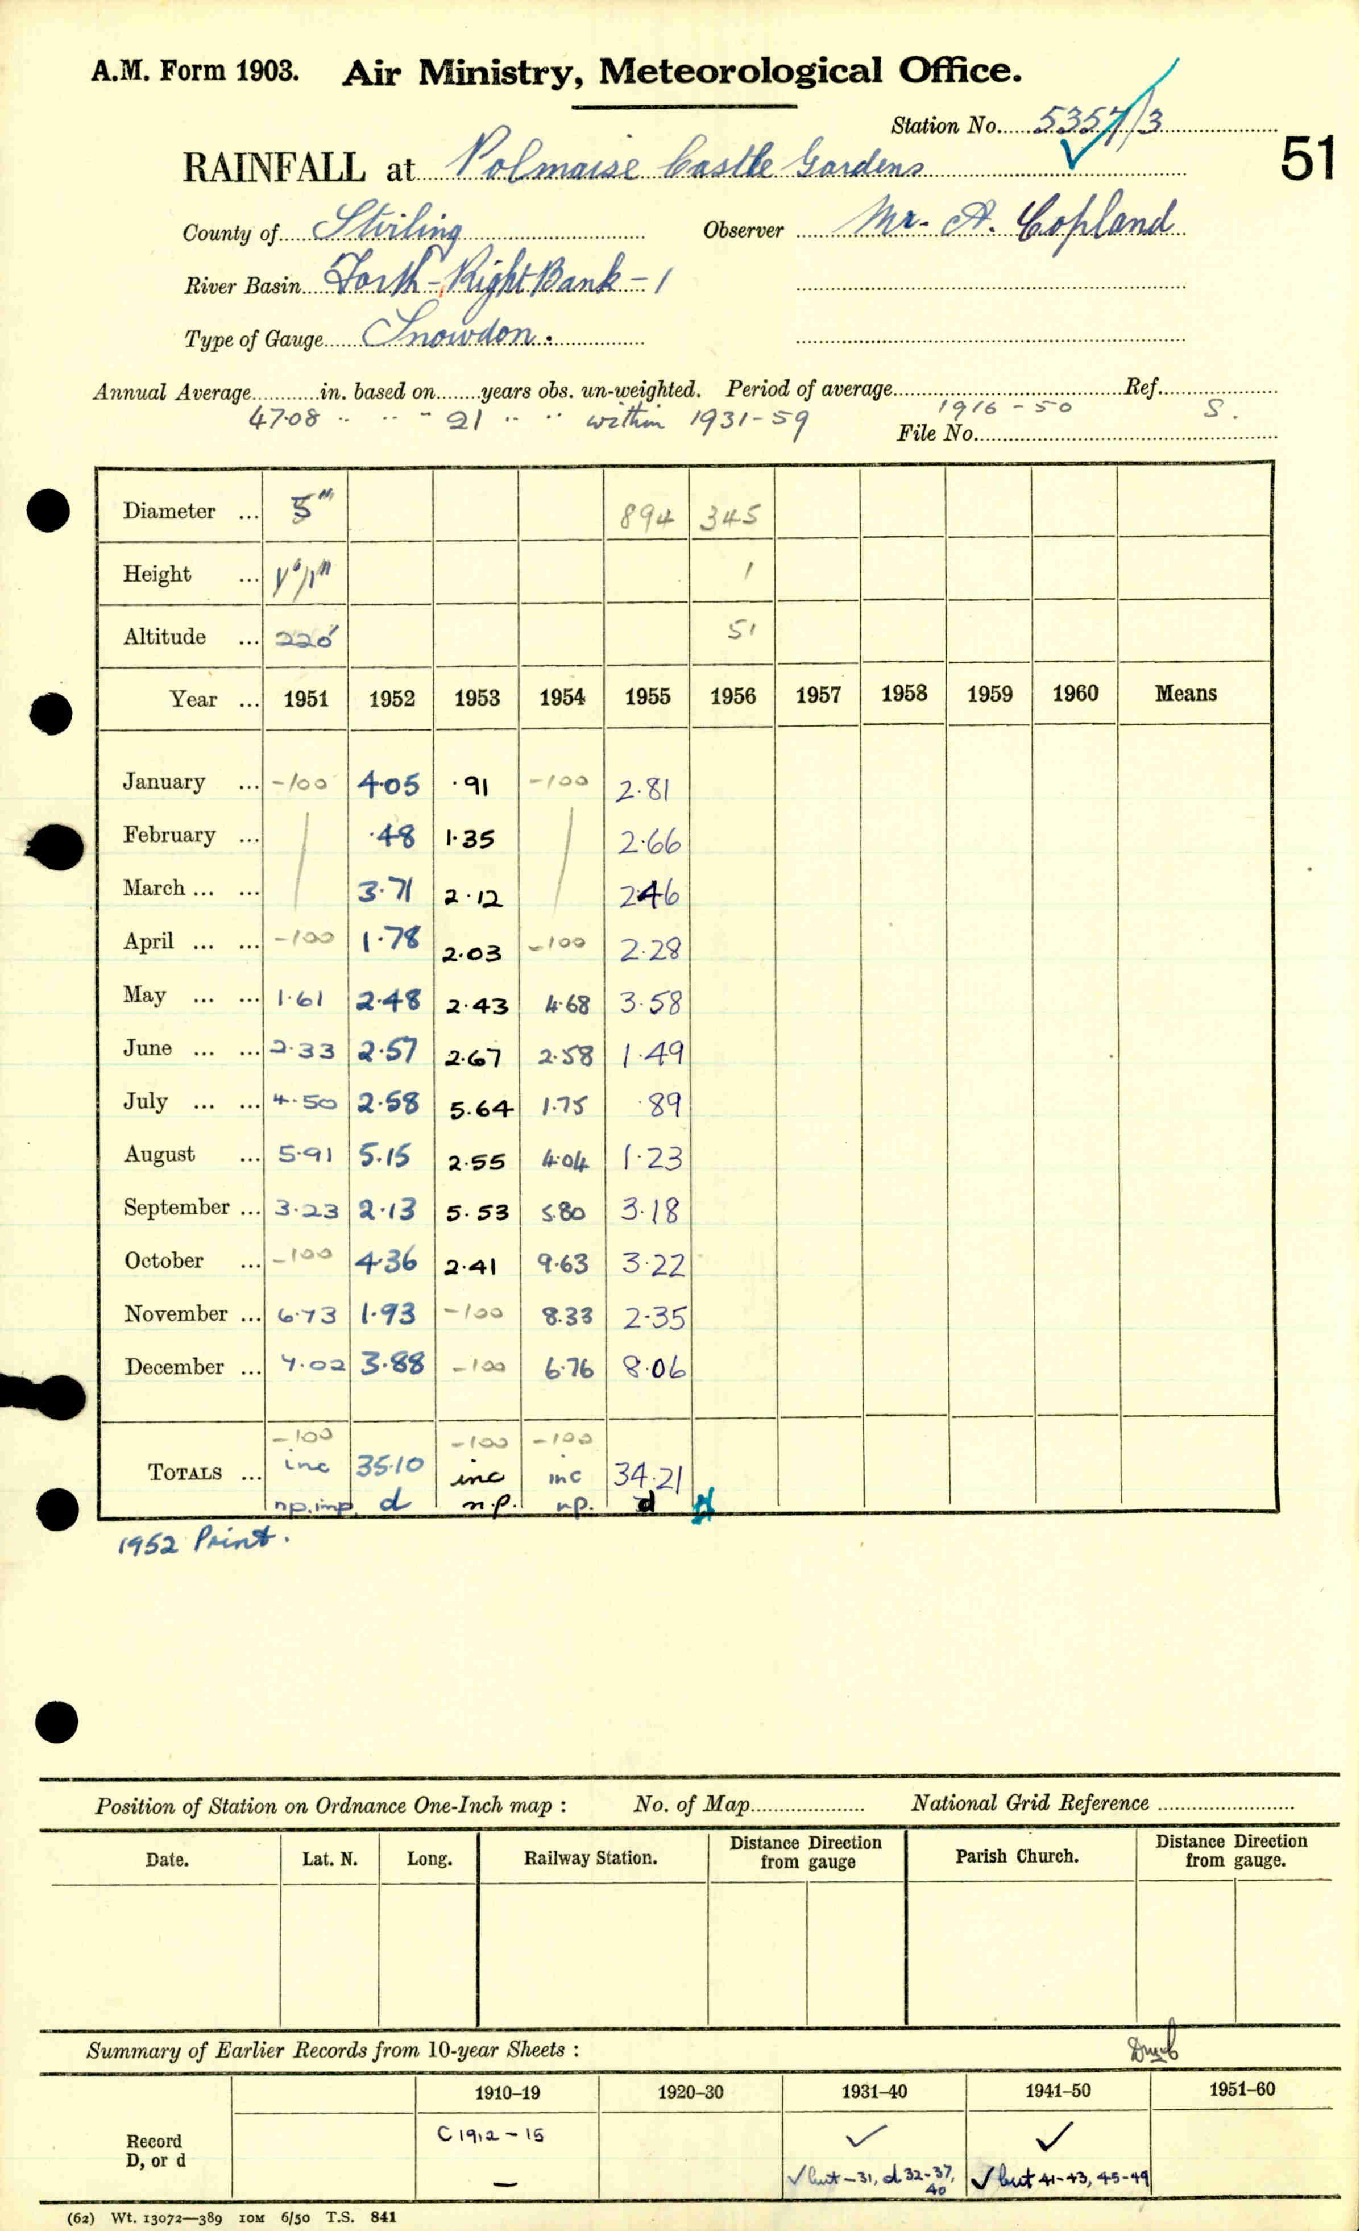 A.M. Form 1903. Air Ministry, Meteorological Office.
Station No. 5357/3
51
RAINFALL at Polmaise Castle Gardens
County of Stirling Observer Mr. A. Copland
River Basin Forth - Right Bank - 1
Type of Gauge Snowdon.
Annual Average in. based on years obs. un-weighted. Period of average Ref.
47.08 " " " 21 " " within 1931-59 1916-50 S.
File No.
Diameter ... 5" 894 345
Height ... 1'1" 1
Altitude ... 220' 51
Year ... 1951 1952 1953 1954 1955 1956 1957 1958 1959 1960 Means
January ... -100 4.05 .91 -100 2.81
February ... .48 1.35 2.66
March ... ... 3.71 2.12 2.46
April ... ... -100 1.78 2.03 -100 2.28
May ... ... 1.61 2.48 2.43 4.68 3.58
June ... ... 2.33 2.57 2.67 2.58 1.49
July ... ... 4.50 2.58 5.64 1.75 .89
August ... 5.91 5.15 2.55 4.04 1.23
September ... 3.23 2.13 5.53 5.80 3.18
October ... -100 4.36 2.41 9.63 3.22
November ... 6.73 1.93 -100 8.33 2.35
December ... 7.02 3.88 -100 6.76 8.06
-100 -100 -100
TOTALS ... inc 35.10 inc inc 34.21
np.imp. d n.p. np. d
1952 Print.
Position of Station on Ordnance One-Inch map : No. of Map National Grid Reference
Date. Lat. N. Long. Railway Station. Distance from gauge Direction Parish Church. Distance from gauge. Direction
Summary of Earlier Records from 10-year Sheets :
1910-19 1920-30 1931-40 1941-50 1951-60
Record C 1912-15 ✓ ✓
D, or d — ✓ but -31, d 32-37, 40 ✓ but 41-43, 45-49
(62) Wt. 13072—389 10M 6/50 T.S. 841